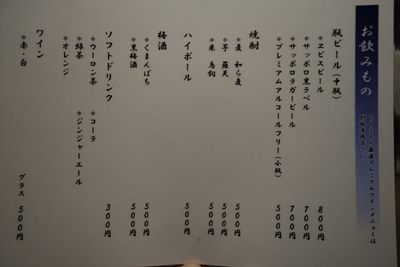 お飲みもの
瓶ビール(中瓶)
*ヱビスビール 800円
*サッポロ黒ラベル 700円
*サッポロラガービール 700円
*プレミアムアルコールフリー(小瓶) 500円
焼酎
*麦 和ら麦 500円
*芋 羅天 500円
*米 鳥飼 500円
ハイボール 500円
梅酒
*くまんばち 500円
*黒梅酒 500円
ソフトドリンク 300円
*ウーロン茶 *コーラ
*緑茶 *ジンジャーエール
*オレンジ
ワイン
*赤・白 グラス 500円